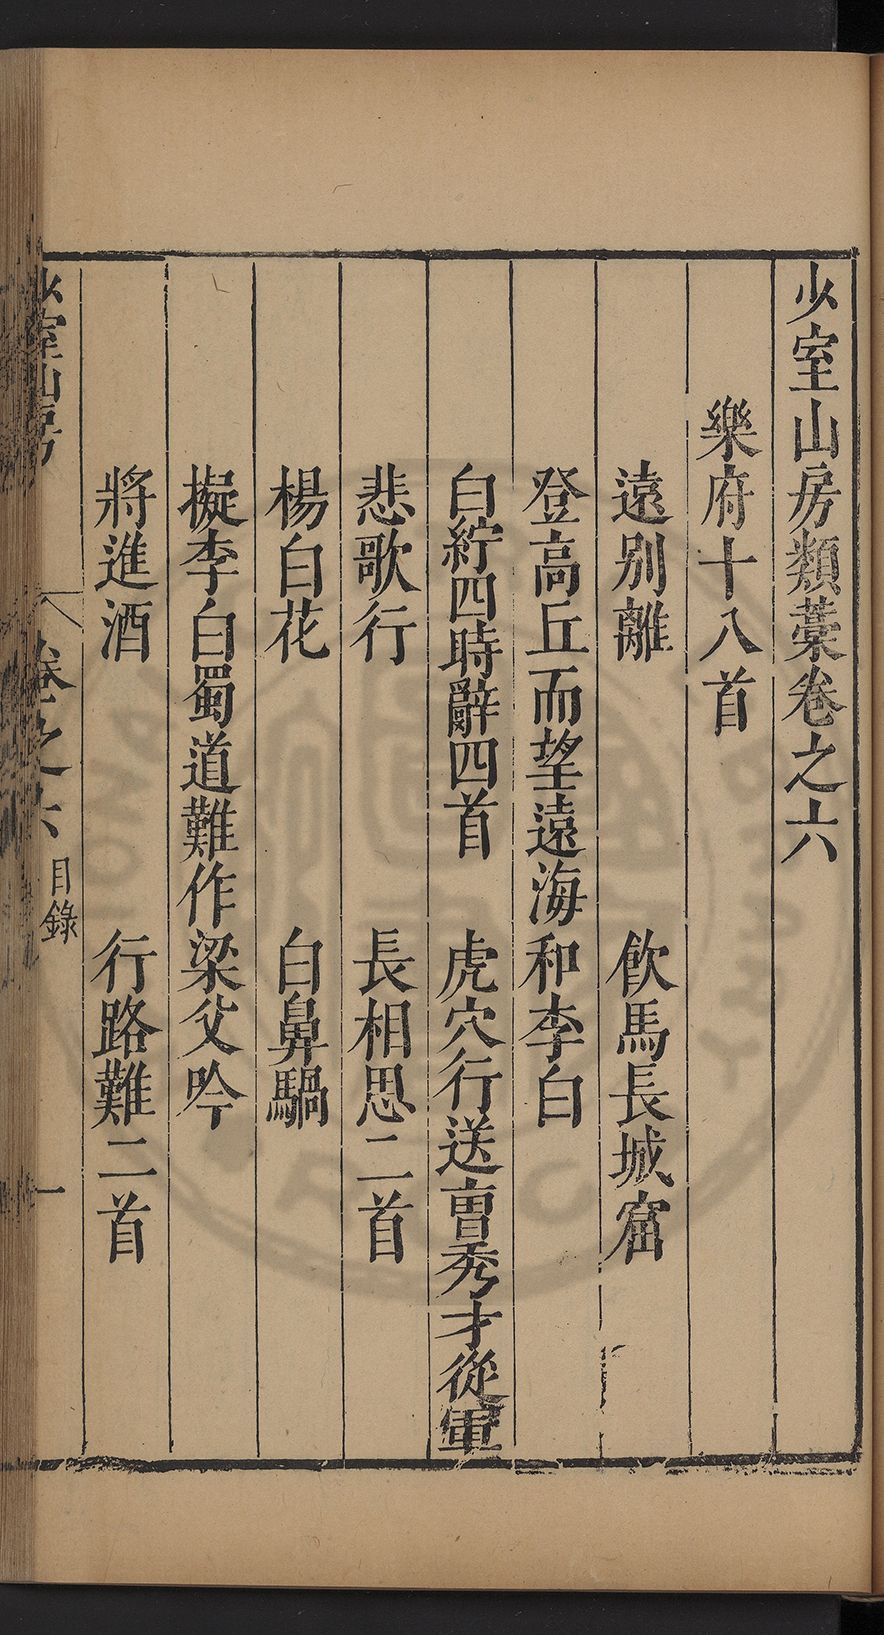 少室山房類藁卷之六
樂府十八首
遠別離　飲馬長城窟
登高丘而望遠海和李白
白紵四時辭四首　虎穴行送曹秀才從軍
悲歌行　長相思二首
楊白花　白鼻騧
擬李白蜀道難作梁父吟
將進酒　行路難二首
少室山房　卷之六　目錄　一